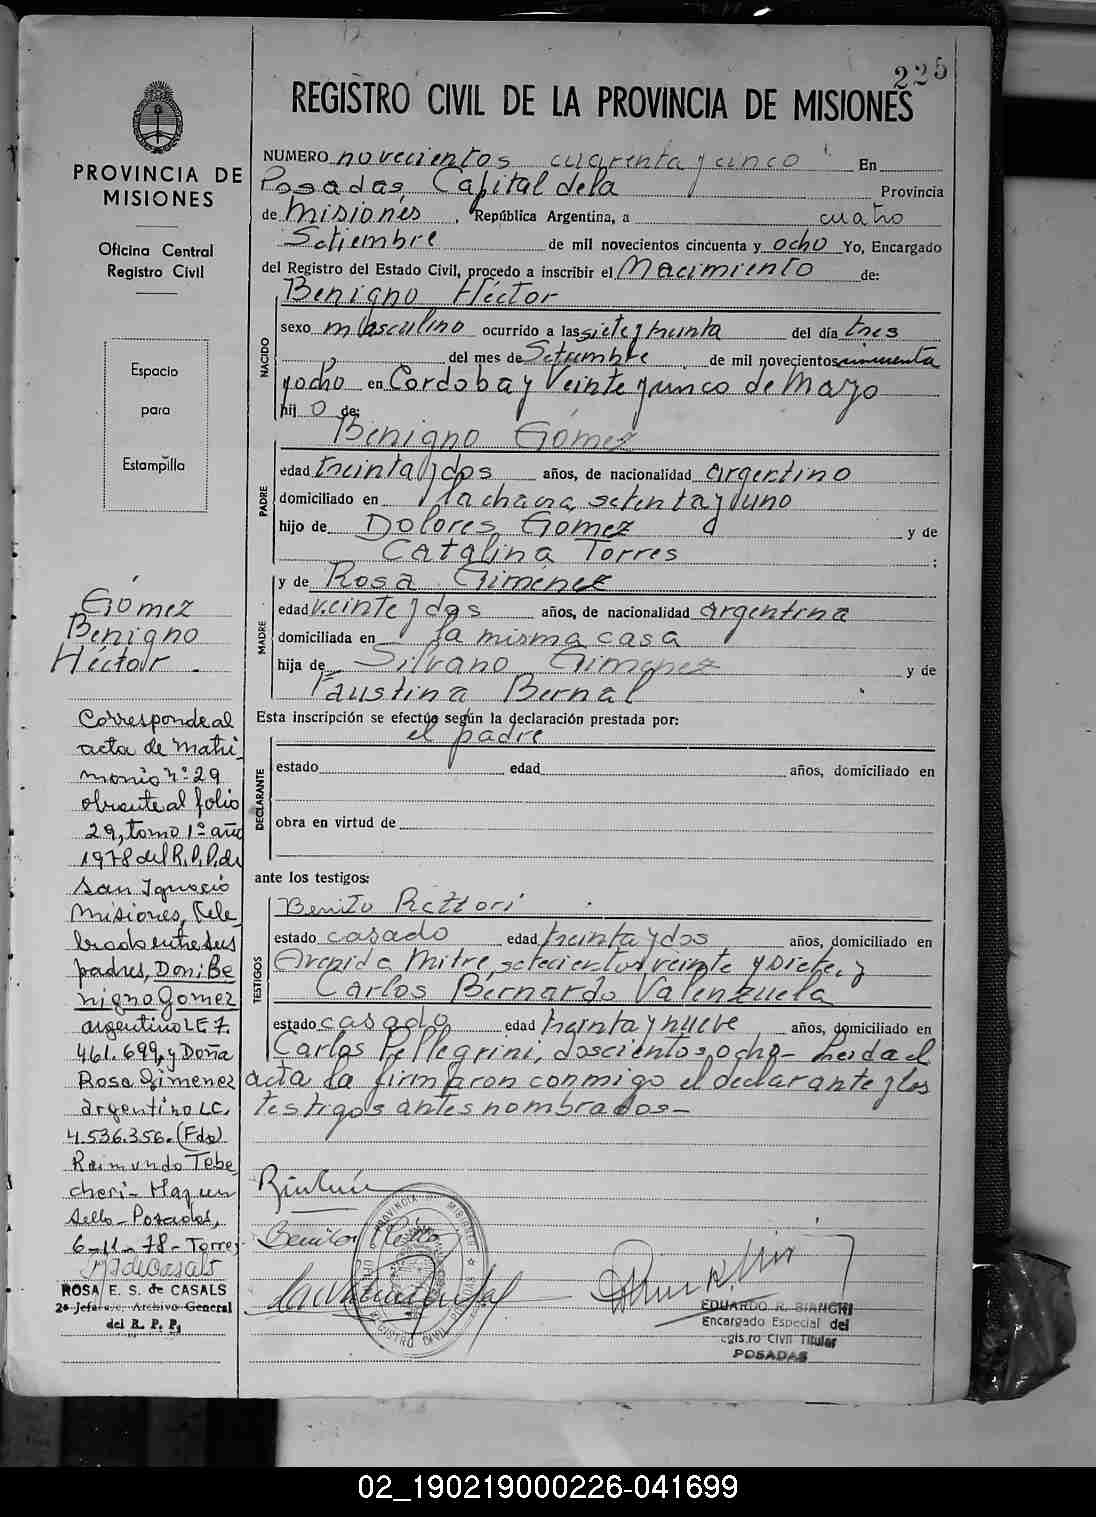 225
REGISTRO CIVIL DE LA PROVINCIA DE MISIONES
PROVINCIA DE
MISIONES
Oficina Central
Registro Civil
Espacio
para
Estampilla
NUMERO novecientos cuarenta y cinco En
Posadas, Capital de la Provincia
de Misiones, República Argentina, a cuatro
Setiembre de mil novecientos cincuenta y ocho Yo, Encargado
del Registro del Estado Civil, procedo a inscribir el Nacimiento de:
NACIDO
Benigno Héctor
sexo masculino ocurrido a las siete y treinta del día tres
del mes de Setiembre de mil novecientos cincuenta
y ocho en Cordoba y Veinte y cinco de Mayo
hij o de:
PADRE
Benigno Gómez
edad treinta y dos años, de nacionalidad argentino
domiciliado en la chacra setenta y uno
hijo de Dolores Gómez y de
Catalina Torres ;
MADRE
y de Rosa Giménez
edad veinte y dos años, de nacionalidad argentina
domiciliada en la misma casa
hija de Silvano Gimenez y de
Faustina Bernal
Esta inscripción se efectúa según la declaración prestada por:
el padre
DECLARANTE
estado edad años, domiciliado en
obra en virtud de
ante los testigos:
TESTIGOS
Benito
estado casado edad treinta y dos años, domiciliado en
Avenida Mitre, setecientos veinte y siete, y
Carlos Bernardo Valenzuela
estado casado edad treinta y nueve años, domiciliado en
Carlos Pellegrini, doscientos ocho- Leida el
acta la firmaron conmigo el declarante y los
testigos antes nombrados-
Gómez
Benigno
Héctor.
Corresponde al
acta de matri
monio nº 29
obrante al folio
29, tomo 1º año
1978 del R.P.P. de
San Ignacio
Misiones, Cele
brado entre sus
padres, Don: Be
nigno Gomez
argentino LE 7.
461.699, y Doña
Rosa Gimenez
argentino LC.
4.536.356. (Fdo)
Raimundo Tebe
cheri- Hay un
sello- Posadas,
6-11-78- Torres
ROSA E. S. de CASALS
2ª Jefa a/c. Archivo General
del R. P. P.
EDUARDO R. BIANCHI
Encargado Especial del
egis.ro Civil Titular
POSADAS
02_190219000226-041699